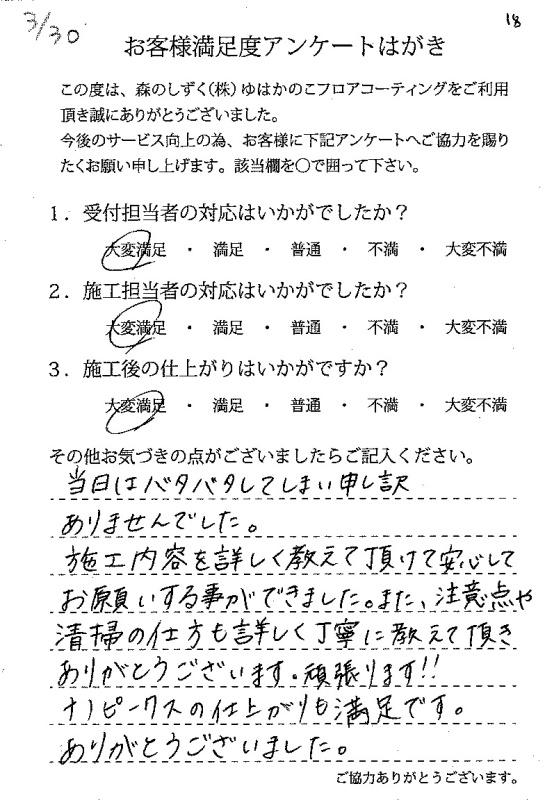 3/30
18
お客様満足度アンケートはがき
この度は、森のしずく(株)ゆはかのこフロアコーティングをご利用
頂き誠にありがとうございました。
今後のサービス向上の為、お客様に下記アンケートへご協力を賜り
たくお願い申し上げます。該当欄を〇で囲って下さい。
1．受付担当者の対応はいかがでしたか？
大変満足 ・ 満足 ・ 普通 ・ 不満 ・ 大変不満
2．施工担当者の対応はいかがでしたか？
大変満足 ・ 満足 ・ 普通 ・ 不満 ・ 大変不満
3．施工後の仕上がりはいかがですか？
大変満足 ・ 満足 ・ 普通 ・ 不満 ・ 大変不満
その他お気づきの点がございましたらご記入ください。
当日はバタバタしてしまい申し訳
ありませんでした。
施工内容を詳しく教えて頂けて安心して
お願いする事ができました。また、注意点や
清掃の仕方も詳しく丁寧に教えて頂き
ありがとうございます。頑張ります!!
ナノピークスの仕上がりも満足です。
ありがとうございました。
ご協力ありがとうございます。